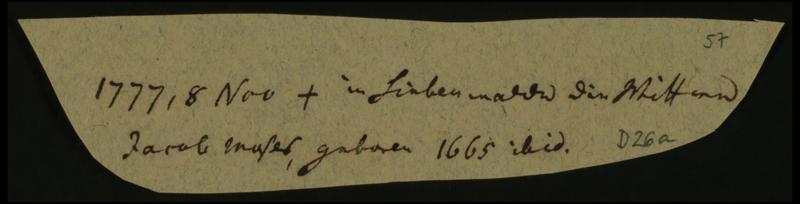 57
1777, 8 Nov + in Liebenwalde die Wittwe
Jacob Moses, geboren 1665 ibid.
D26a